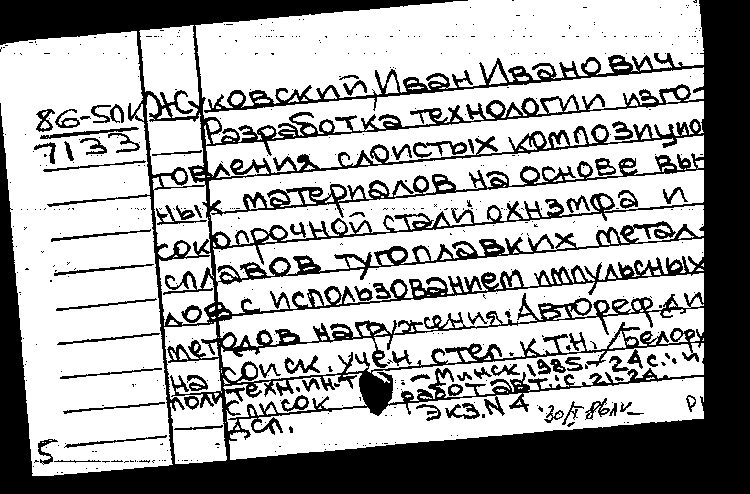 86-50К
7133
Жуковский, Иван Иванович.
Разработка технологии изго-
товления слоистых композицион
ных материалов на основе вы
сокопрочной стали ОХН3МФА и
сплавов тугоплавких метал-
лов с использованием импульсных
методов нагружения: Автореф. ди
на соиск. учен. степ. к.т.н. /Белору
поли техн. ин-т. - Минск, 1985. - 24 с.: и
Список работ авт.: с. 21-24.
ДСП. Экз. N 4.
5